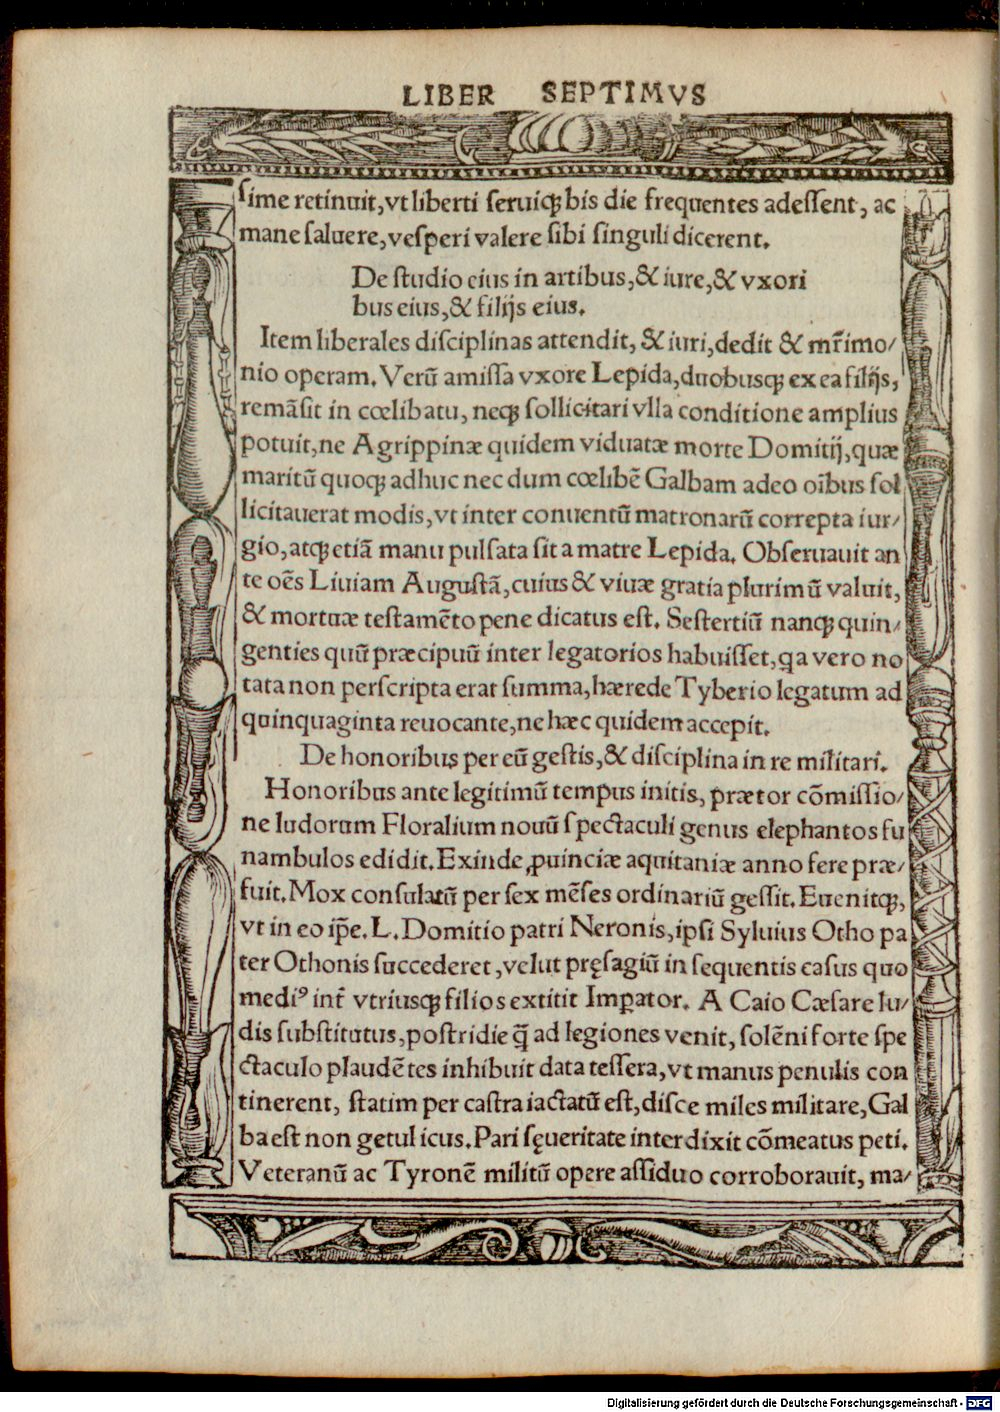 LIBER SEPTIMVS
ſime retinuit, vt liberti ſeruiqꝫ bis die frequentes adeſſent, ac
mane ſaluere, veſperi valere ſibi ſinguli dicerent.
De ſtudio eius in artibus, & iure, & vxori
bus eius, & filijs eius.
Item liberales diſciplinas attendit, & iuri, dedit & mr̃imo⸗
nio operam. Verũ amiſſa vxore Lepida, duobusqꝫ ex ea filijs,
remãſit in cœlibatu, neqꝫ ſollicitari vlla conditione amplius
potuit, ne Agrippinæ quidem viduatæ morte Domitij, quæ
maritũ quoqꝫ adhuc nec dum cœlibẽ Galbam adeo oĩbus ſol
licitauerat modis, vt inter conuentũ matronarũ correpta iur⸗
gio, atqꝫ etiã manu pulſata ſit a matre Lepida. Obſeruauit an
te oẽs Liuiam Auguſtã, cuius & viuæ gratia plurimũ valuit,
& mortuæ teſtamẽto pene dicatus eſt. Seſtertiũ nanqꝫ quin⸗
genties quũ præcipuũ inter legatorios habuiſſet, qa vero no
tata non perſcripta erat ſumma, hærede Tyberio legatum ad
quinquaginta reuocante, ne hæc quidem accepit.
De honoribus per eũ geſtis, & diſciplina in re militari.
Honoribus ante legitimũ tempus initis, prætor cõmiſſio⸗
ne ludorum Floralium nouũ ſpectaculi genus elephantos fu
nambulos edidit. Exinde ꝓuinciæ aquitaniæ anno fere præ⸗
fuit. Mox conſulatũ per ſex mẽſes ordinariũ geſſit. Euenitqꝫ,
vt in eo ip̃e. L. Domitio patri Neronis, ipſi Syluius Otho pa
ter Othonis ſuccederet, velut pręſagiũ in ſequentis caſus quo
mediꝰ int̃ vtriusqꝫ filios extitit Imꝑator. A Caio Cæſare lu⸗
dis ſubſtitutus, poſtridie q̃ ad legiones venit, ſolẽni forte ſpe
ctaculo plaudẽtes inhibuit data teſſera, vt manus penulis con
tinerent, ſtatim per caſtra iactatũ eſt, diſce miles militare, Gal
ba eſt non getulicus. Pari ſęueritate interdixit cõmeatus peti.
Veteranũ ac Tyronẽ militũ opere aſſiduo corroborauit, ma⸗
Digitalisierung gefördert durch die Deutsche Forschungsgemeinschaft - DFG